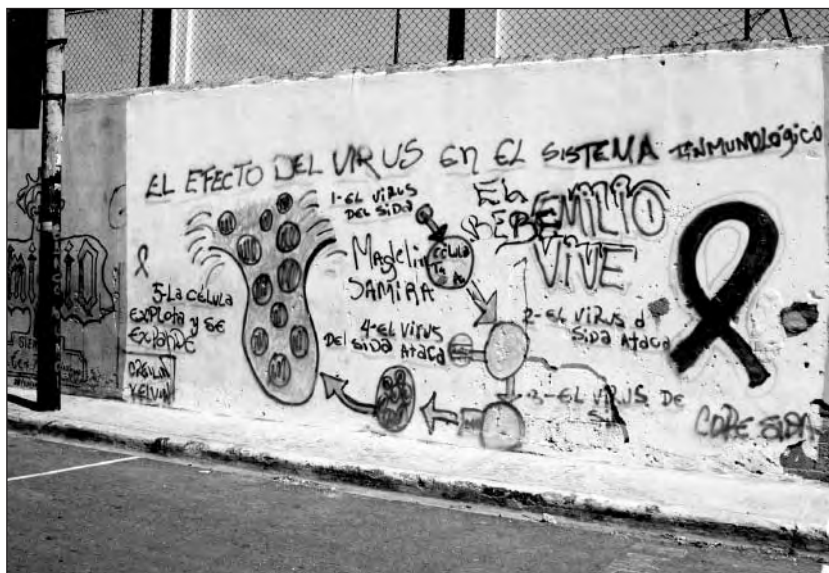 EL EFECTO DEL VIRUS EN EL SISTEMA INMUNOLÓGICO
1-EL VIRUS
DEL SIDA
CÉLULA
EL
BEBE
EMILIO
VIVE
Magelin
SAMIRA
2-EL VIRUS d
SIDA ATACA
3-EL VIRUS DE
4-EL VIRUS
DEL SIDA ATACA
5-LA CÉLULA
EXPLOTA Y SE
EXPANDE
KELVIN
COPRESIDA